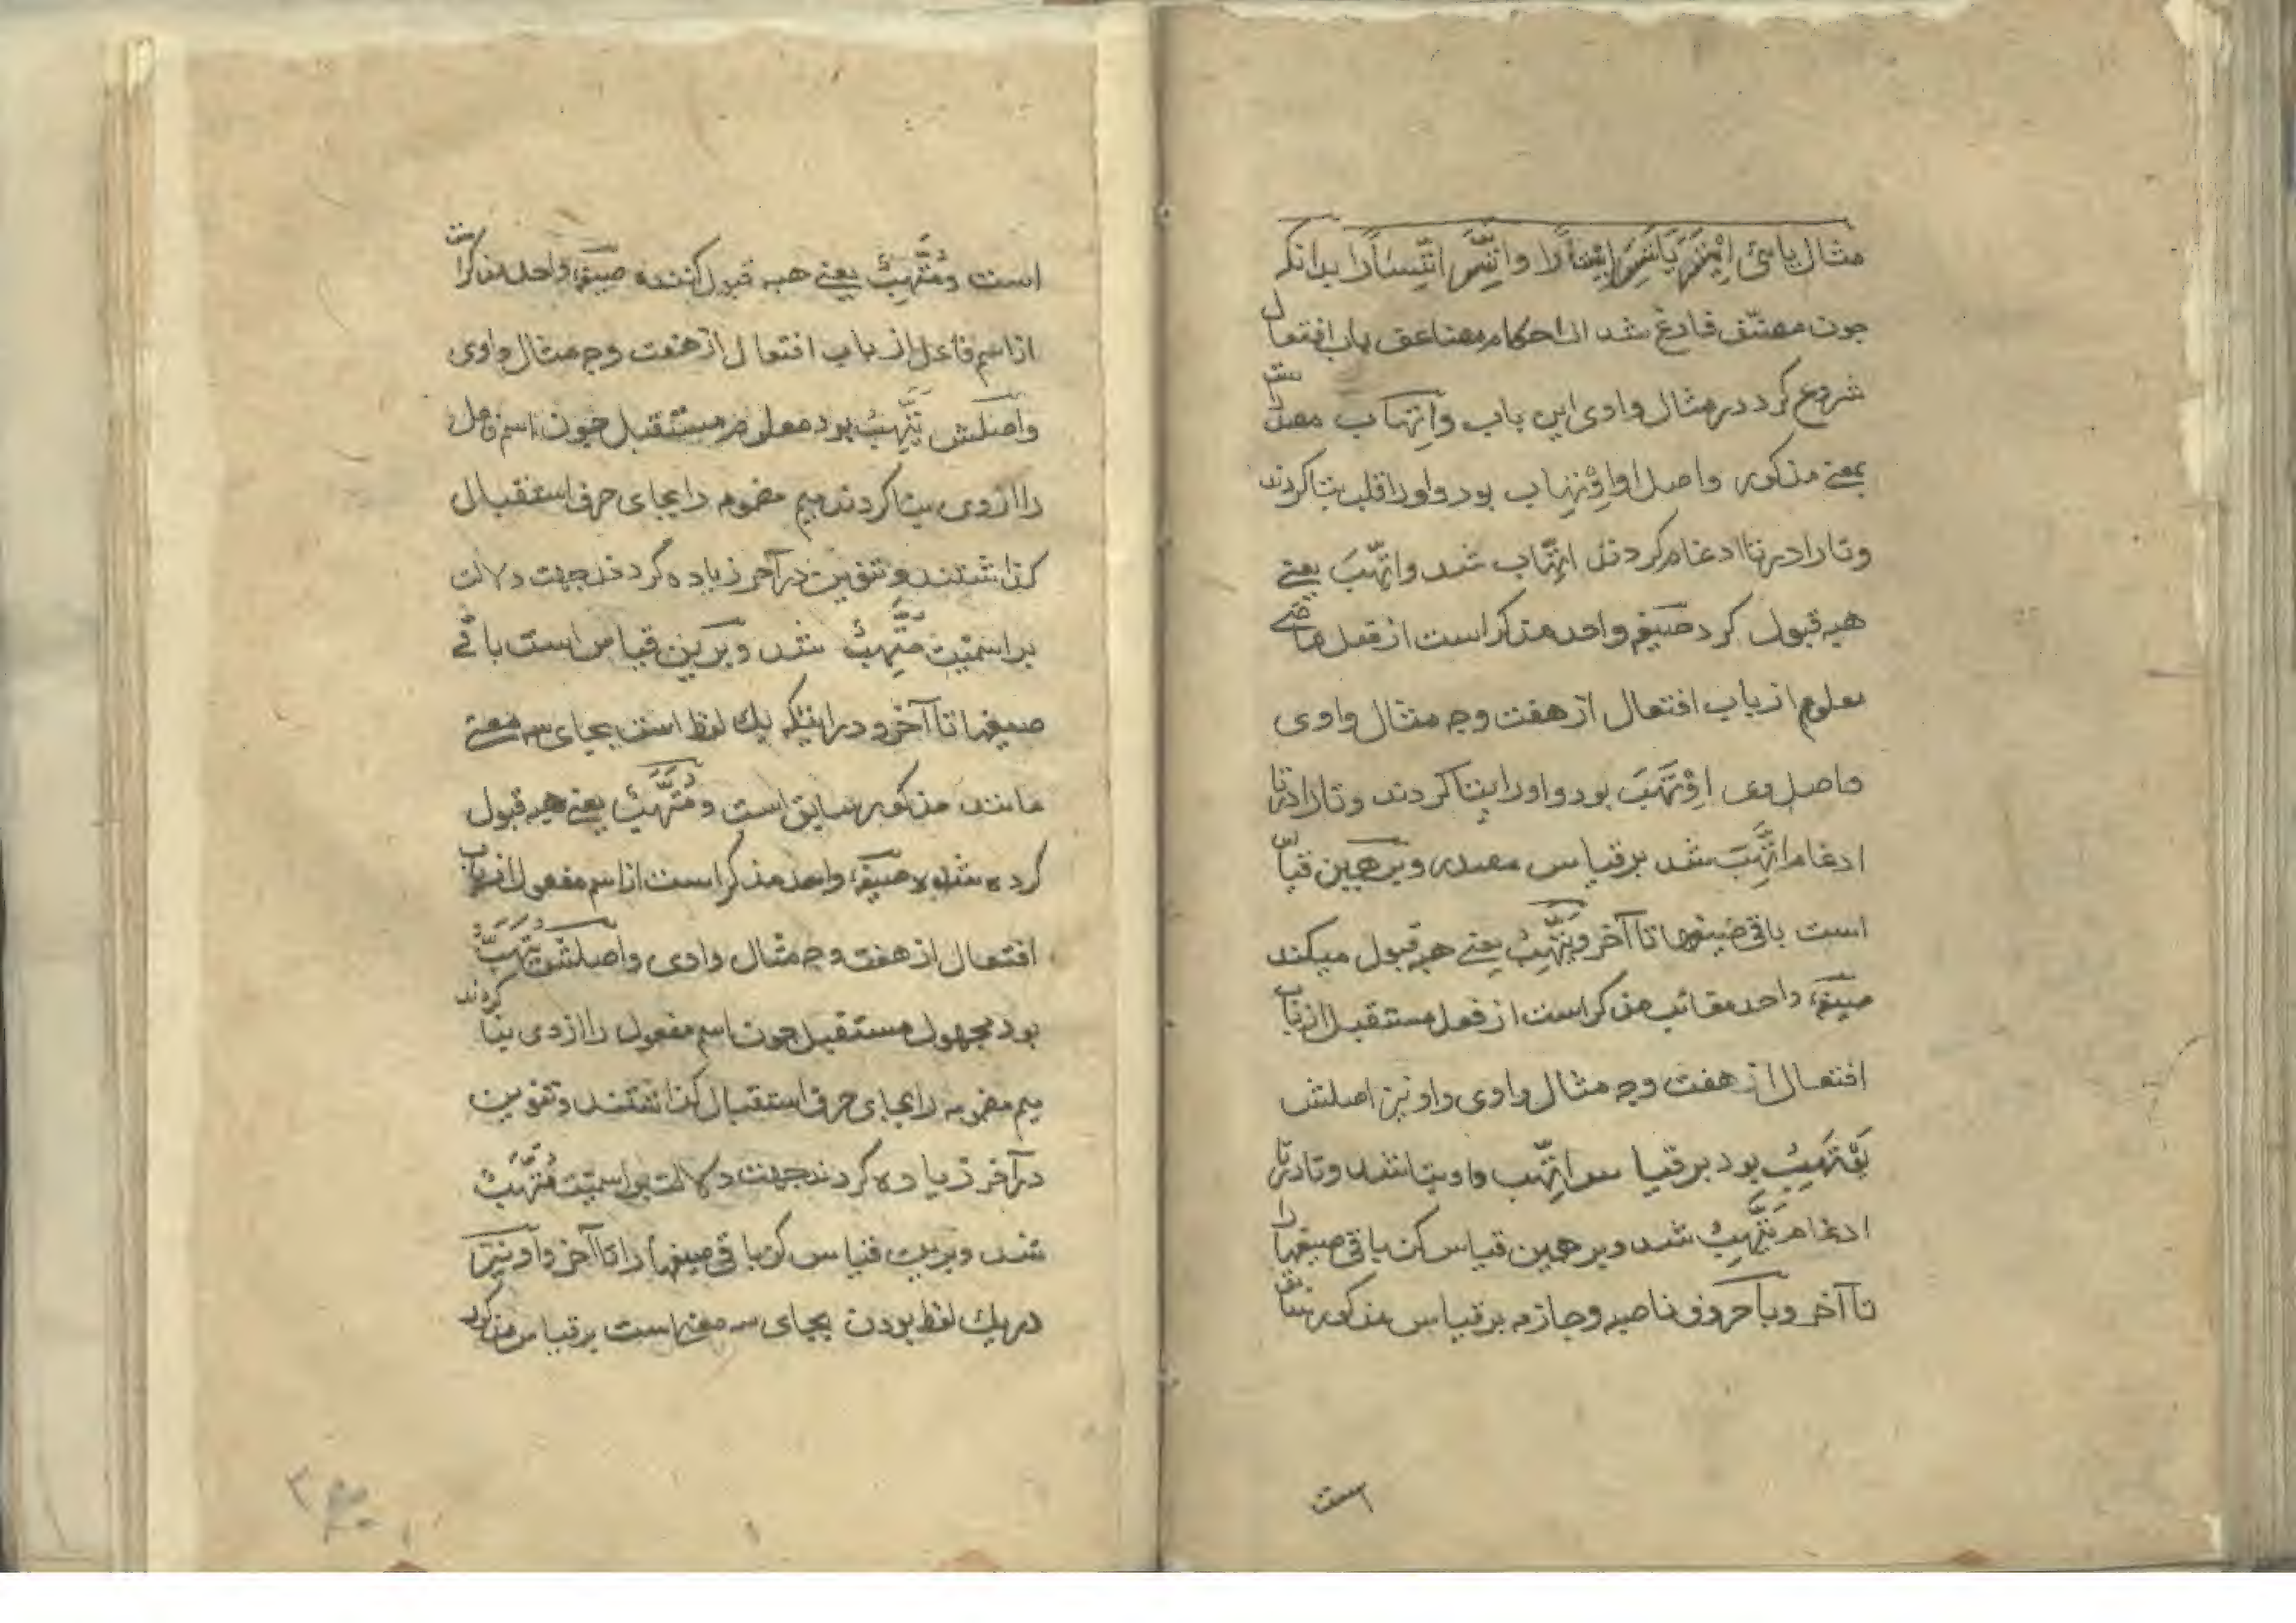 مثال یائی اِیْتَسَرَ یَاتَسِرُ اِیْتِسَارًا وَاتَّسَرَ اتِّسَارًا بدانکه
چون مصنّف فارغ شد از احکام مضاعف باب افتعال
شروع کرد در مثال واوی این باب واِتِّهاب مصدر است
بمعنے مذکور واصل او اِوْتِهاب بود واو را قلب بتا کردند
وتا را در تا ادغام کردند اتِّهاب شد واتَّهَبَ یعنے
هبه قبول کرد صیغه واحد مذکر است از فعل ماضے
معلوم از باب افتعال از هفت وجه مثال واوی
واصل وی اِوْتَهَبَ بود واو را بتا کردند وتا را در تا
ادغام اتَّهَبَ شد بر قیاس مصدر وبر همین قیاس
است باقی صیغها تا آخر ویَتَّهِبُ یعنے هبه قبول میکند
صیغهٔ واحد مغائب مذکر است از فعل مستقبل از باب
افتعال از هفت وجه مثال واوی واو نیز اصلش
یَوْتَهِبُ بود بر قیاس اتَّهب واو بتا شد وتا در تا
ادغام یَتَّهِبُ شد وبر همین قیاس کن باقی صیغها را
تا آخر وبا حروف ناصبه وجازمه بر قیاس مذکور سابق
است
است ومُتَّهِبٌ یعنے هبه قبول کننده صیغهٔ واحد مذکر است
از اسم فاعل از باب افتعال از هفت وجه مثال واوی
واصلش یَتَّهِبُ بود معلوم مستقبل چون اسم فاعل
را از وی بنا کردند میم مضموم را بجای حرف استقبال
گذاشتند وتنوین در آخر زیاده کردند جهت دلالت
بر اسمیّت مُتَّهِبٌ شد وبرین قیاس است باقے
صیغها تا آخر ودر اینکه یک لفظ است بجای سه معنے
مانند مذکور سابق است ومُتَّهَبٌ یعنے هبه قبول
کرده شده صیغهٔ واحد مذکر است از اسم مفعول از باب
افتعال از هفت وجه مثال واوی واصلش یُتَّهَبُ
بود مجهول مستقبل چون اسم مفعول را از وی بنا کردند
میم مضمومه را بجای حرف استقبال گذاشتند وتنوین
در آخر زیاده کردند جهت دلالت بر اسمیّت مُتَّهَبٌ
شد وبرین قیاس کن باقی صیغها را تا آخر واو نیز
در یک لفظ بودن بجای سه معنے است بر قیاس مذکور